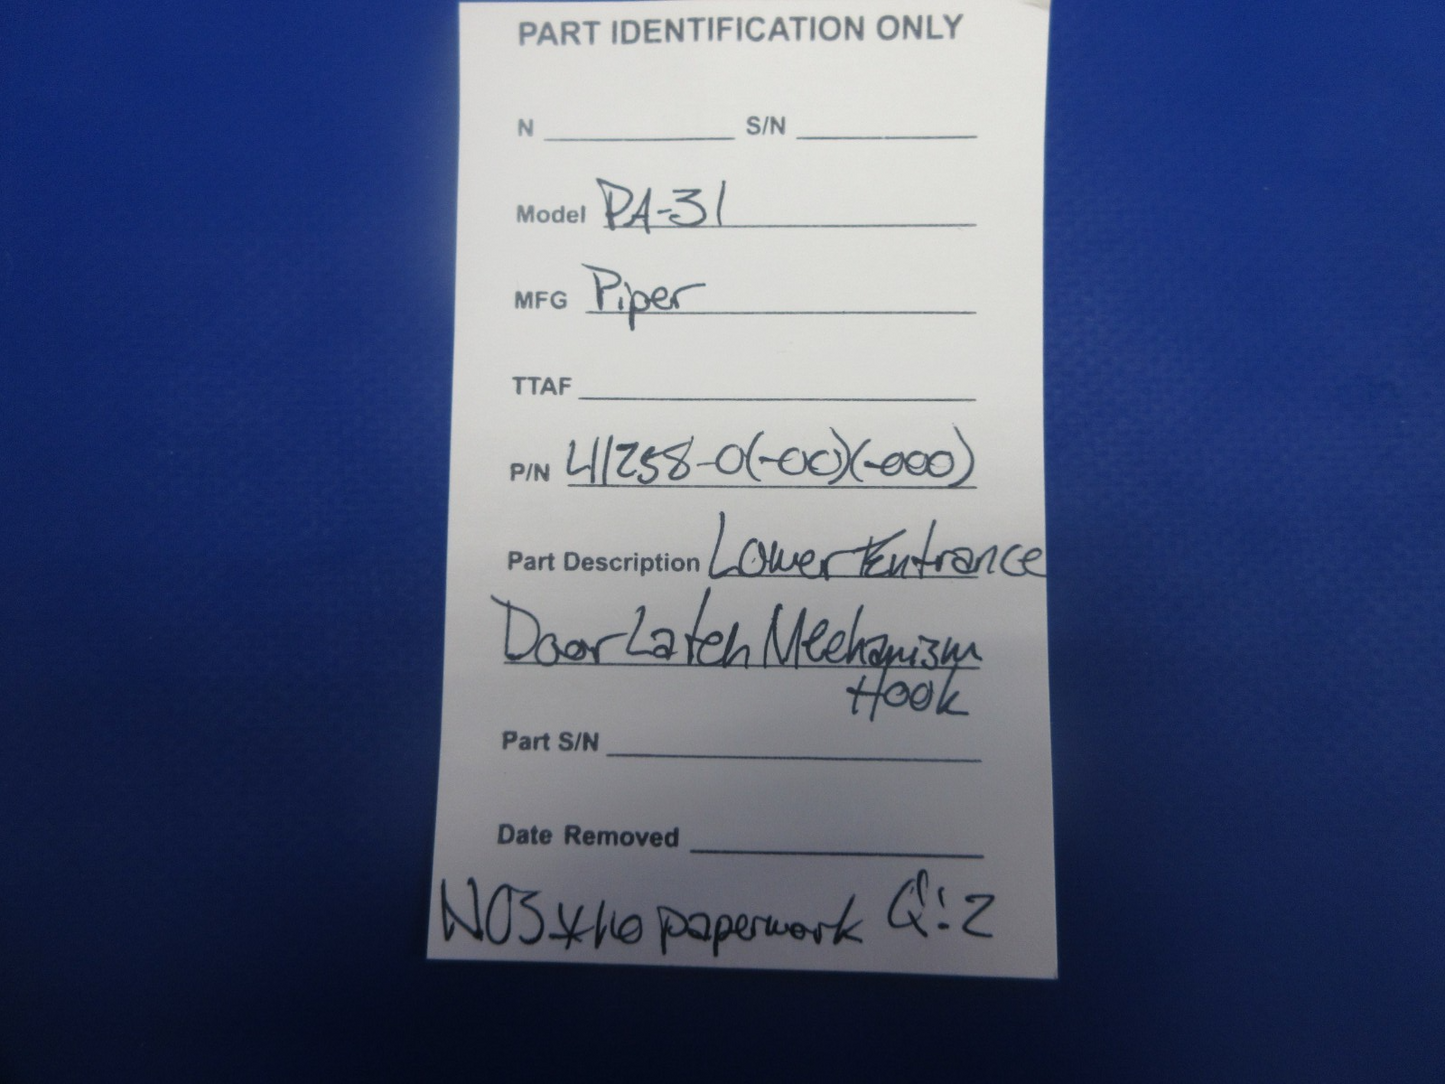 PART IDENTIFICATION ONLY
N S/N
Model PA-31
MFG Piper
TTAF
P/N 41258-0(-00)(-000)
Part Description Lower Entrance
Door Latch Mechanism
Hook
Part S/N
Date Removed
NOS *No paperwork Q:2